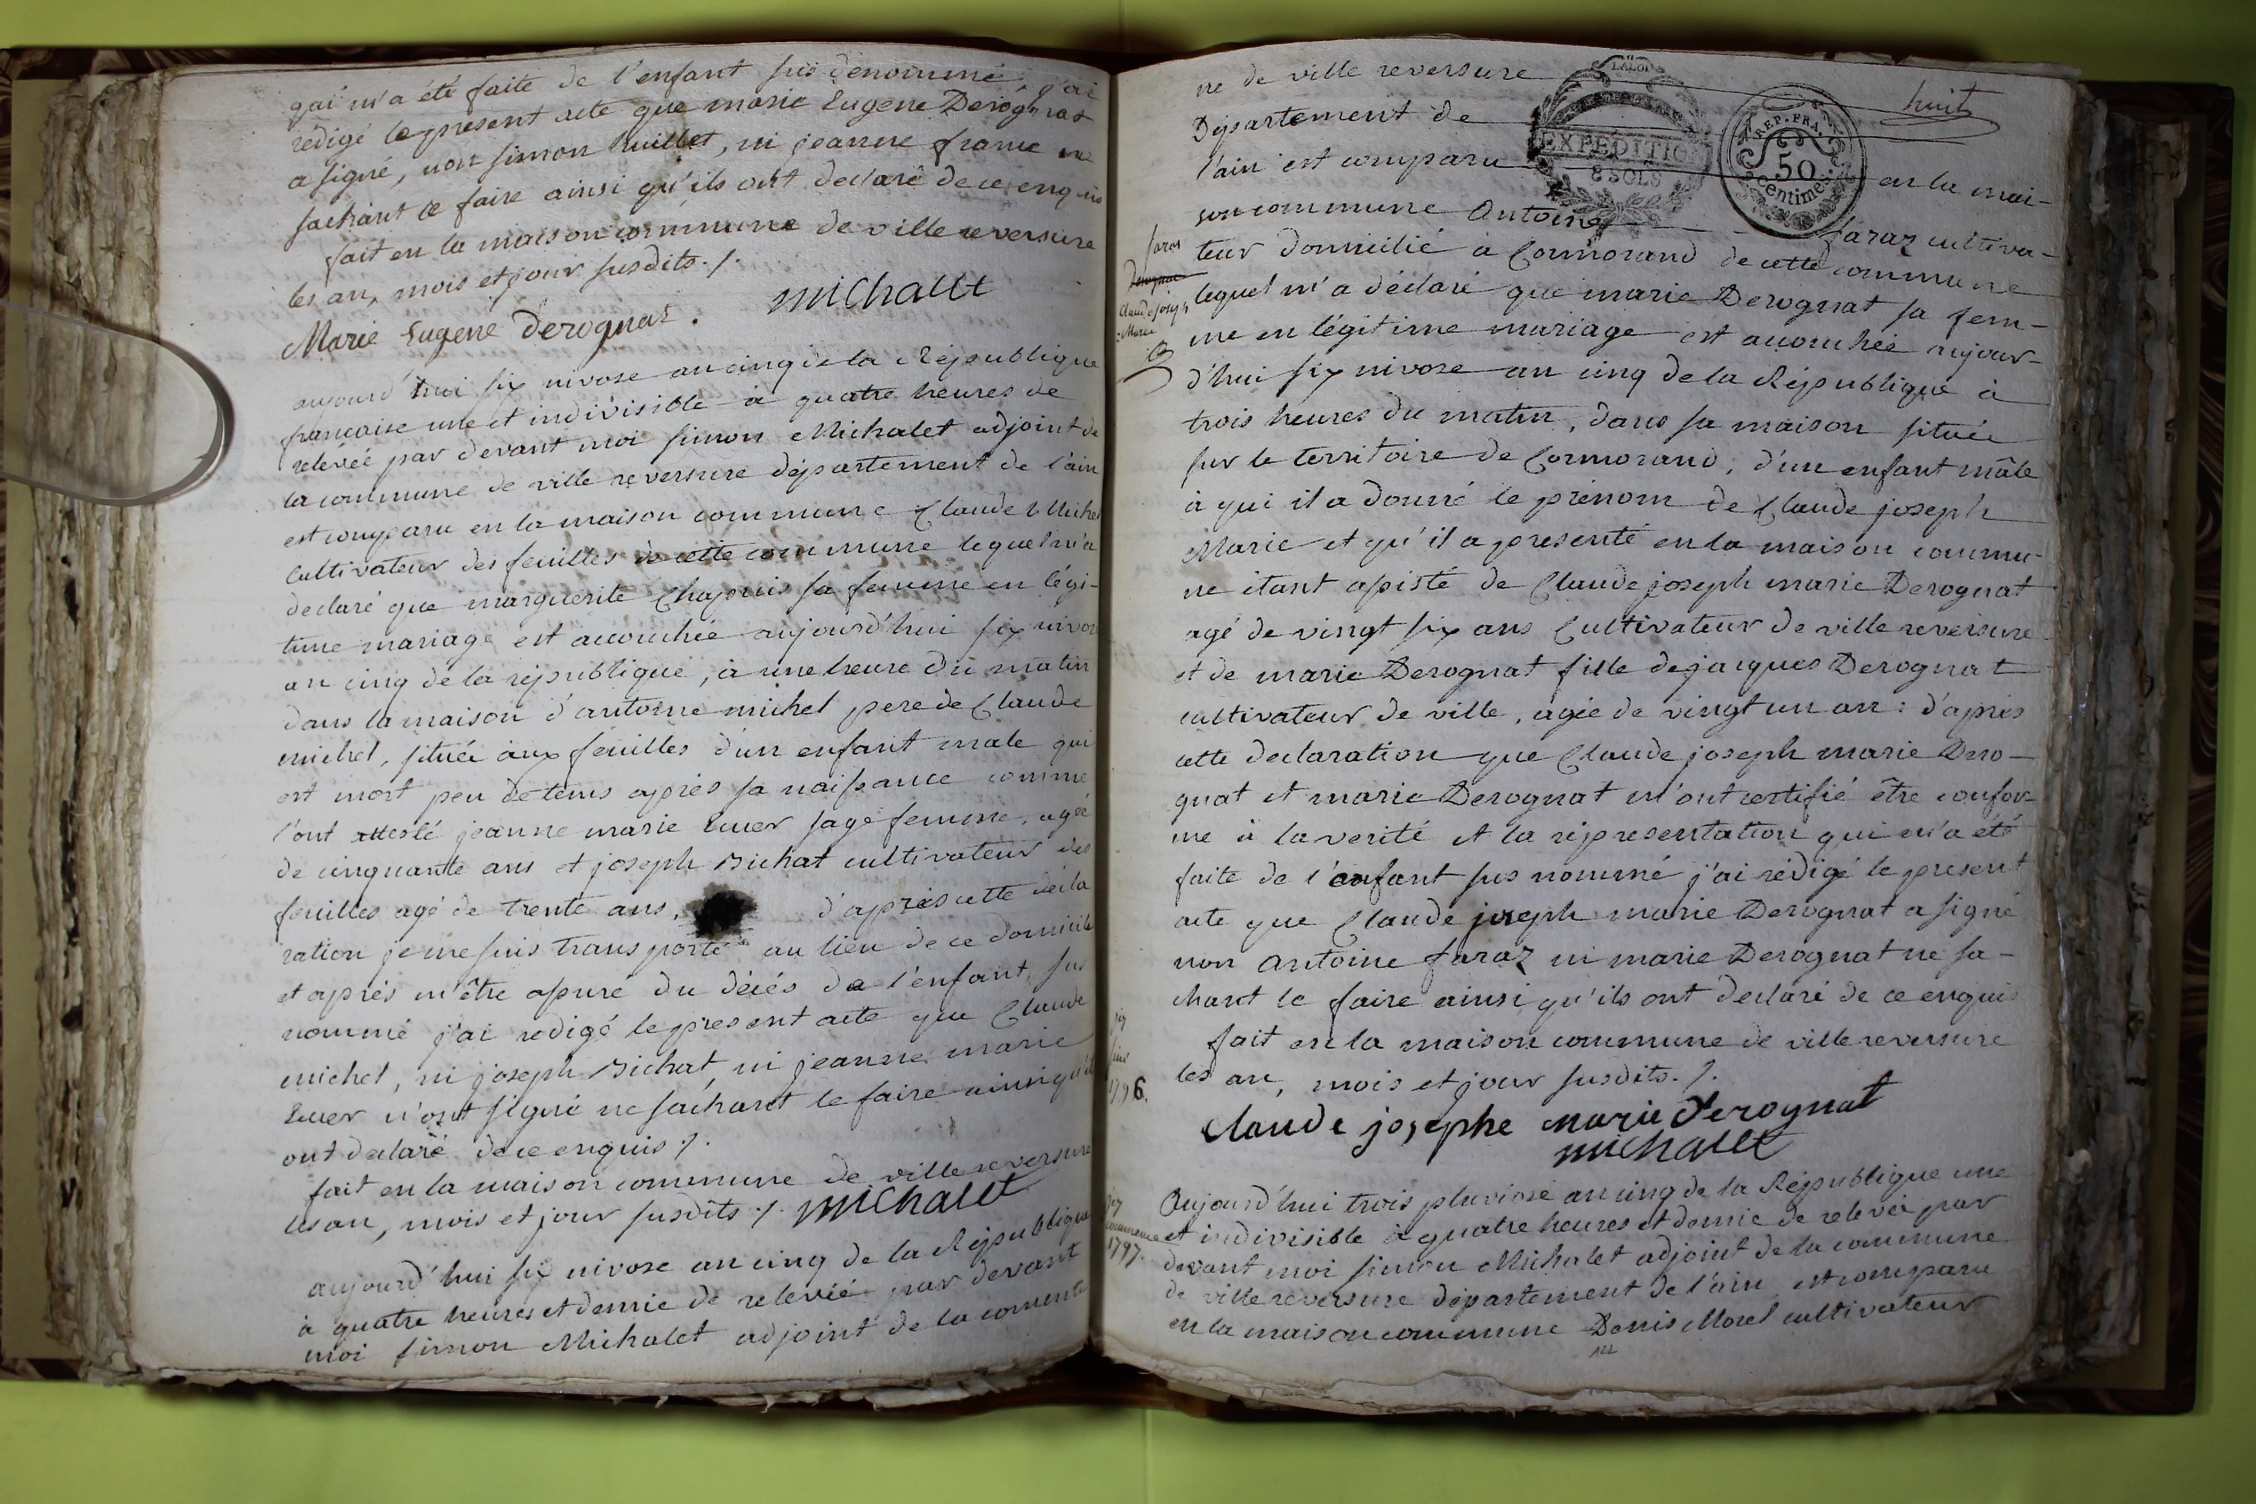 qui m'a été faite de l'enfant sus denommé, j'ai
redigé le present acte que marie Eugene Derognat
a signé, non simon Vuillet, ni jeanne france ne
sachant le faire ainsi qu'ils ont declaré de ce enquis
fait en la maison commune de ville reversure
les an, mois et jour susdits ./.
michalet
Marie Eugene derognat .
aujourd'hui six nivose an cinq de la République
francaise une et indivisible à quatre heures de
relevée par devant moi simon Michalet adjoint de
la commune de ville reversure département de l'ain
est comparu en la maison commune Claude Michel
cultivateur des feuilles de cette commune lequel m'a
declaré que marguerite Chapuis sa femme en légi-
time mariage est accouchée aujourd'hui six nivose
an cinq de la république, à une heure du matin
dans la maison d'antoine michel pere de Claude
michel, située aux feuilles d'un enfant male qui
est mort peu de tems après sa naissance comme
l'ont attesté jeanne marie sage femme, agée
de cinquante ans et joseph Bichat cultivateur des
feuilles agé de trente ans, d'après cette décla
ration je me suis transporté au lieu de ce domicile
et après m'être assuré du décés de l'enfant, sus
nommé j'ai redigé le present acte que Claude
michel, ni joseph Bichat, ni jeanne marie
n'ont signé ne sachant le faire ainsi qu'ils
ont declaré de ce enquis ./.
fait en la maison commune de ville reversure
les an, mois et jour susdits ./. michalet
aujourd'hui six nivose an cinq de la République
à quatre heures et demie de relevée par devant
moi simon Michalet adjoint de la commu
ne de ville reversure
huit
Département de
l'ain est comparu en la mai-
son commune Antoine faraz cultiva-
LA LOI
EXPÉDITION
8 SOLS
REP. FRA.
50
centimes.
teur domicilié à Cormorand de cette commune
faraz
Derognat
Claude joseph
Marie
lequel m'a déclaré que marie Derognat sa fem-
me en légitime mariage est accouchée aujour-
d'hui six nivose an cinq de la République à
trois heures du matin, dans sa maison située
sur le territoire de Cormorand, d'un enfant mâle
à qui il a donné le prénom de Claude joseph
Marie et qu'il a presenté en la maison commu-
ne étant assisté de Claude joseph marie Derognat
agé de vingt six ans Cultivateur de ville reversure
et de marie Derognat fille de jacques Derognat
cultivateur de ville, agée de vingt un an : d'après
cette declaration que Claude joseph marie Dero-
gnat et marie Derognat m'ont certifié être confor-
me à la verité et la représentation qui m'a été
faite de l'enfant sus nommé j'ai rédigé le present
acte que Claude joseph marie Derognat a signé
non Antoine faraz ni marie Derognat ne sa-
chant le faire ainsi qu'ils ont déclaré de ce enquis
fait en la maison commune de ville reversure
les an, mois et jour susdits ./.
1796.
claude josephe marie derognat
michalet
Aujourd'hui trois pluviose an cinq de la République une
et indivisible à quatre heures et demie de relevée par
commence
1797.
devant moi simon Michalet adjoint de la commune
de ville reversure département de l'ain est comparu
en la maison commune Denis Morel cultivateur